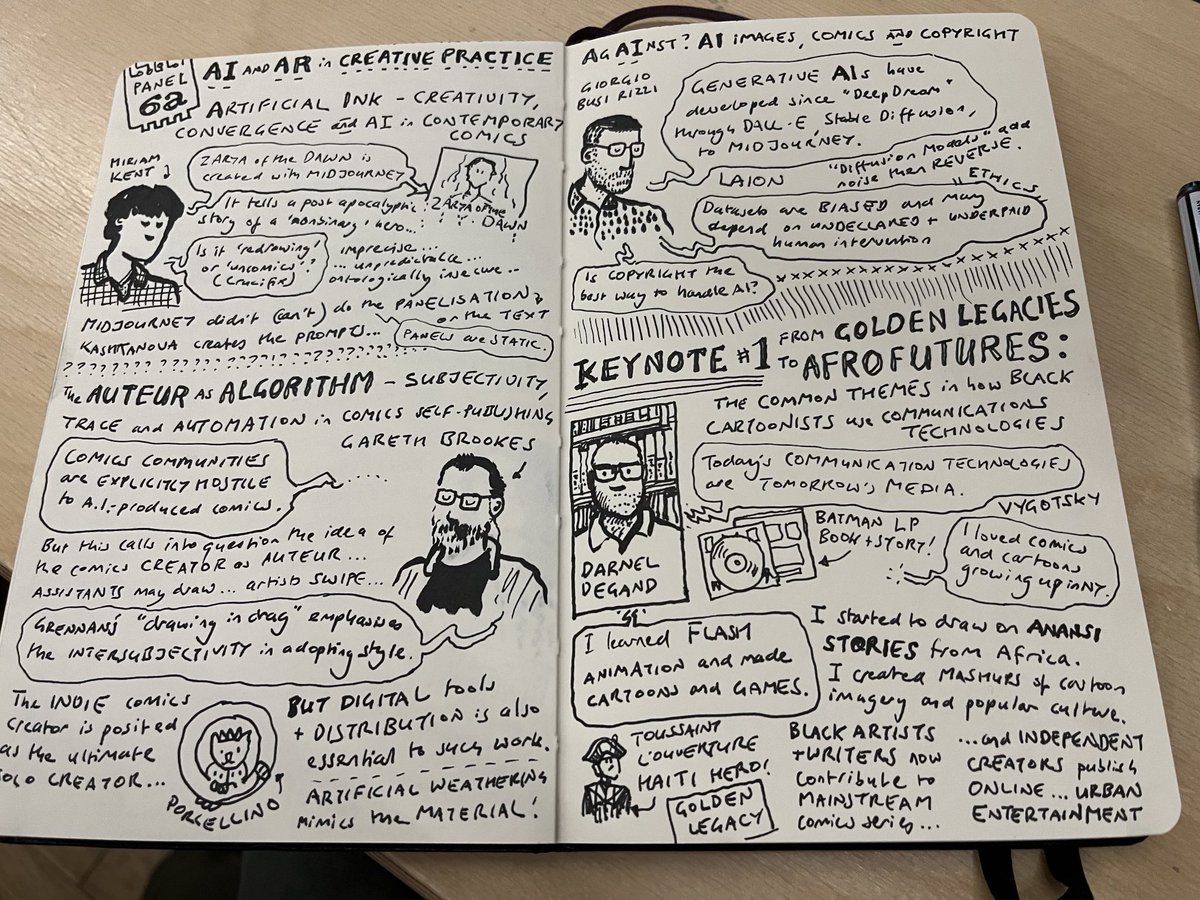 PANEL
6a
AI AND AR in CREATIVE PRACTICE
ARTIFICIAL INK – CREATIVITY,
CONVERGENCE and AI in CONTEMPORARY
COMICS
MIRIAM
KENT
ZARYA of the DAWN is
created with MIDJOURNEY
ZARYA OF THE
DAWN
It tells a post apocalyptic
story of a 'nonbinary' hero...
Is it 'redrawing'
or 'uncomics'?
(Crucifix)
imprecise...
... unpredictable...
ontologically insecure..
MIDJOURNEY didn't (can't) do the PANELISATION
or the TEXT
KASHTANOVA creates the PROMPTS...
PANELS are STATIC.
? ? ? ? ? ? ? ? ? ? ? ? ? ? ? ? ? ? ? ? ? ? ? ?
The AUTEUR AS ALGORITHM – SUBJECTIVITY,
TRACE and AUTOMATION in COMICS SELF-PUBLISHING
GARETH BROOKES
COMICS COMMUNITIES
are EXPLICITLY HOSTILE
to A.I.-produced comics.
But this calls into question the idea of
the comics CREATOR as AUTEUR...
ASSISTANTS may draw... artists SWIPE...
GRENNAN'S "drawing in drag" emphasises
the INTERSUBJECTIVITY in adopting style.
The INDIE comics
creator is posited
as the ultimate
SOLO CREATOR...
PORCELLINO
BUT DIGITAL tools
+ DISTRIBUTION is also
essential to such work.
ARTIFICIAL WEATHERING
mimics the MATERIAL!
AGAINST? AI IMAGES, COMICS AND COPYRIGHT
GIORGIO
BUSI RIZZI
GENERATIVE AIs have
developed since "DeepDream"
through DALL-E, Stable Diffusion,
to MIDJOURNEY.
"Diffusion Models" add
noise then REVERSE.
LAION
"ETHICS"
Datasets are BIASED and may
depend on UNDECLARED + UNDERPAID
human intervention
Is COPYRIGHT the
best way to handle AI?
KEYNOTE #1 FROM GOLDEN LEGACIES
TO AFROFUTURES:
THE COMMON THEMES in how BLACK
CARTOONISTS use COMMUNICATIONS
TECHNOLOGIES
Today's COMMUNICATION TECHNOLOGIES
are TOMORROW'S MEDIA.
VYGOTSKY
DARNEL
DEGAND
BATMAN LP
BOOK + STORY!
I loved comics
and cartoons
growing up in NY.
I learned FLASH
ANIMATION and made
CARTOONS and GAMES.
I started to draw on ANANSI
STORIES from Africa.
I created MASHUPS of cartoon
imagery and popular culture.
TOUSSAINT
L'OUVERTURE
HAITI HERO!
GOLDEN
LEGACY
BLACK ARTISTS
+ WRITERS now
contribute to
MAINSTREAM
comics series...
...and INDEPENDENT
CREATORS publish
ONLINE... URBAN
ENTERTAINMENT